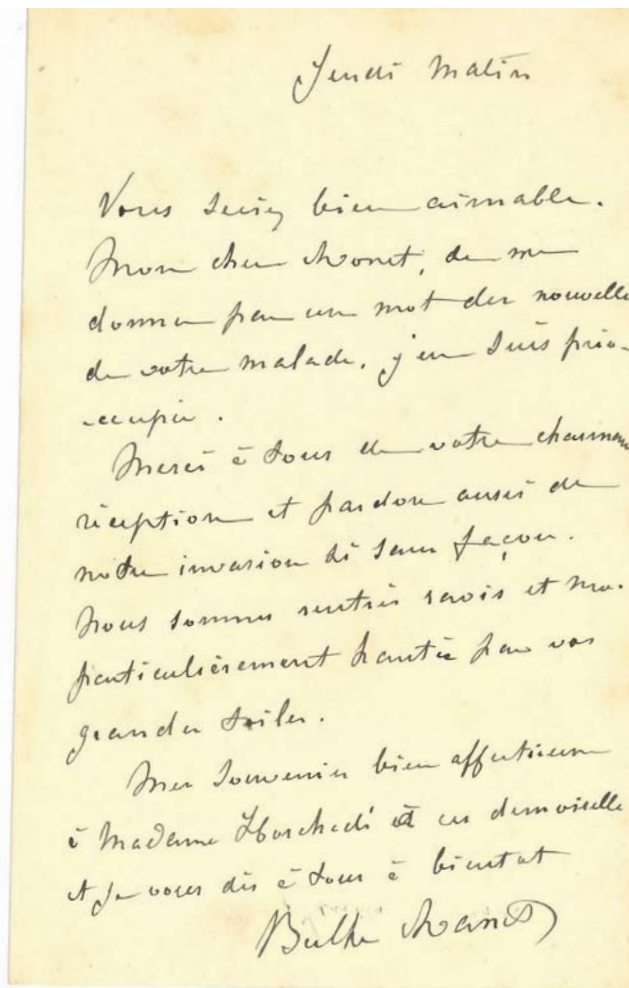 Jeudi Matin
Vous seriez bien aimable.
Mon cher Monet, de me
donner par un mot des nouvelles
de votre malade. j'en suis préo-
-ccupée.
Merci à tous de votre charmante
réception et pardon aussi de
notre invasion si sans façon.
Nous sommes rentrés ravis et moi
particulièrement hantée par vos
grandes toiles.
Mes souvenirs bien affectueux
à Madame Hoschedé et ces demoiselles
et je vous dis à tous à bientot
Berthe Manet